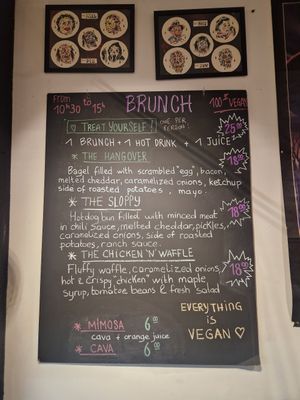 From 10h30 to 15h
BRUNCH
100% VEGAN
♡ TREAT YOURSELF!
ONE PER PERSON!
25.00
1 BRUNCH + 1 HOT DRINK + 1 JUICE
* THE HANGOVER
18.00
Bagel filled with scrambled "egg", bacon,
melted cheddar, caramelized onions, ketchup
side of roasted potatoes, mayo.
* THE SLOPPY
18.00
Hotdog bun filled with minced meat
in chili sauce, melted cheddar, pickles,
caramelized onions, side of roasted
potatoes, ranch sauce.
* THE CHICKEN 'N' WAFFLE
18.00
Fluffy waffle, caramelized onions,
hot & crispy "chicken" with maple
syrup, tomatoe beans & fresh salad
* MIMOSA 6.00
cava + orange juice
* CAVA 6.00
EVERYTHING
is
VEGAN ♡